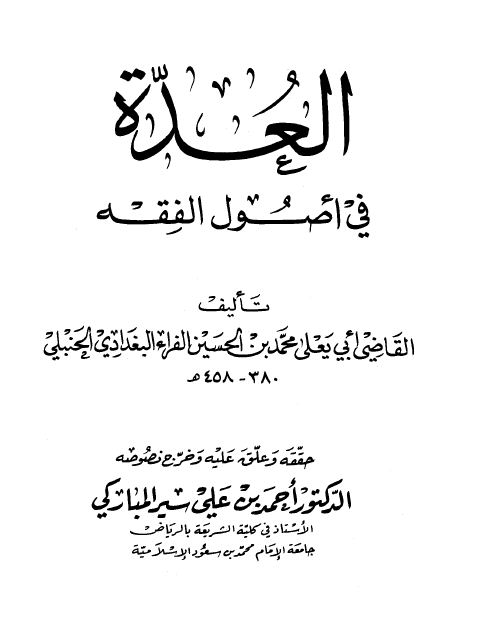 العُدّة
في أصُول الفِقه
تأليف
القَاضِي أبي يَعلى محمَّد بن الحسَين الفراء البَغدَادي الحَنبَلي
٣٨٠ - ٤٥٨ هـ
حقّقه وَعلّق عَليه وَخرّج نصُوصه
الدكتور أحمَد بن عَلي سير المبَاركي
الأستاذ في كلية الشريعَة بالريَاض
جامعة الإمَام محمّد بن سعُود الإسْلاميّة